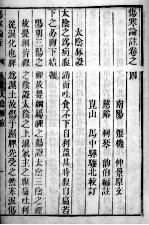 傷寒論註卷之四
南陽 張機 仲景原文
慈谿 柯琴 韻伯編註
崑山 馬中驊 驤北較訂
太陰脉證
太陰之為病腹滿而吐食不下自利益甚時腹自痛若
下之必胸下結
陽明三陽之裡故提綱屬裡之陽證太陰三陰之裡
故提綱皆裡之陰證太陰之上濕氣主之腹痛吐利
從濕化也脾為濕土故傷于濕脾先受之然寒濕傷